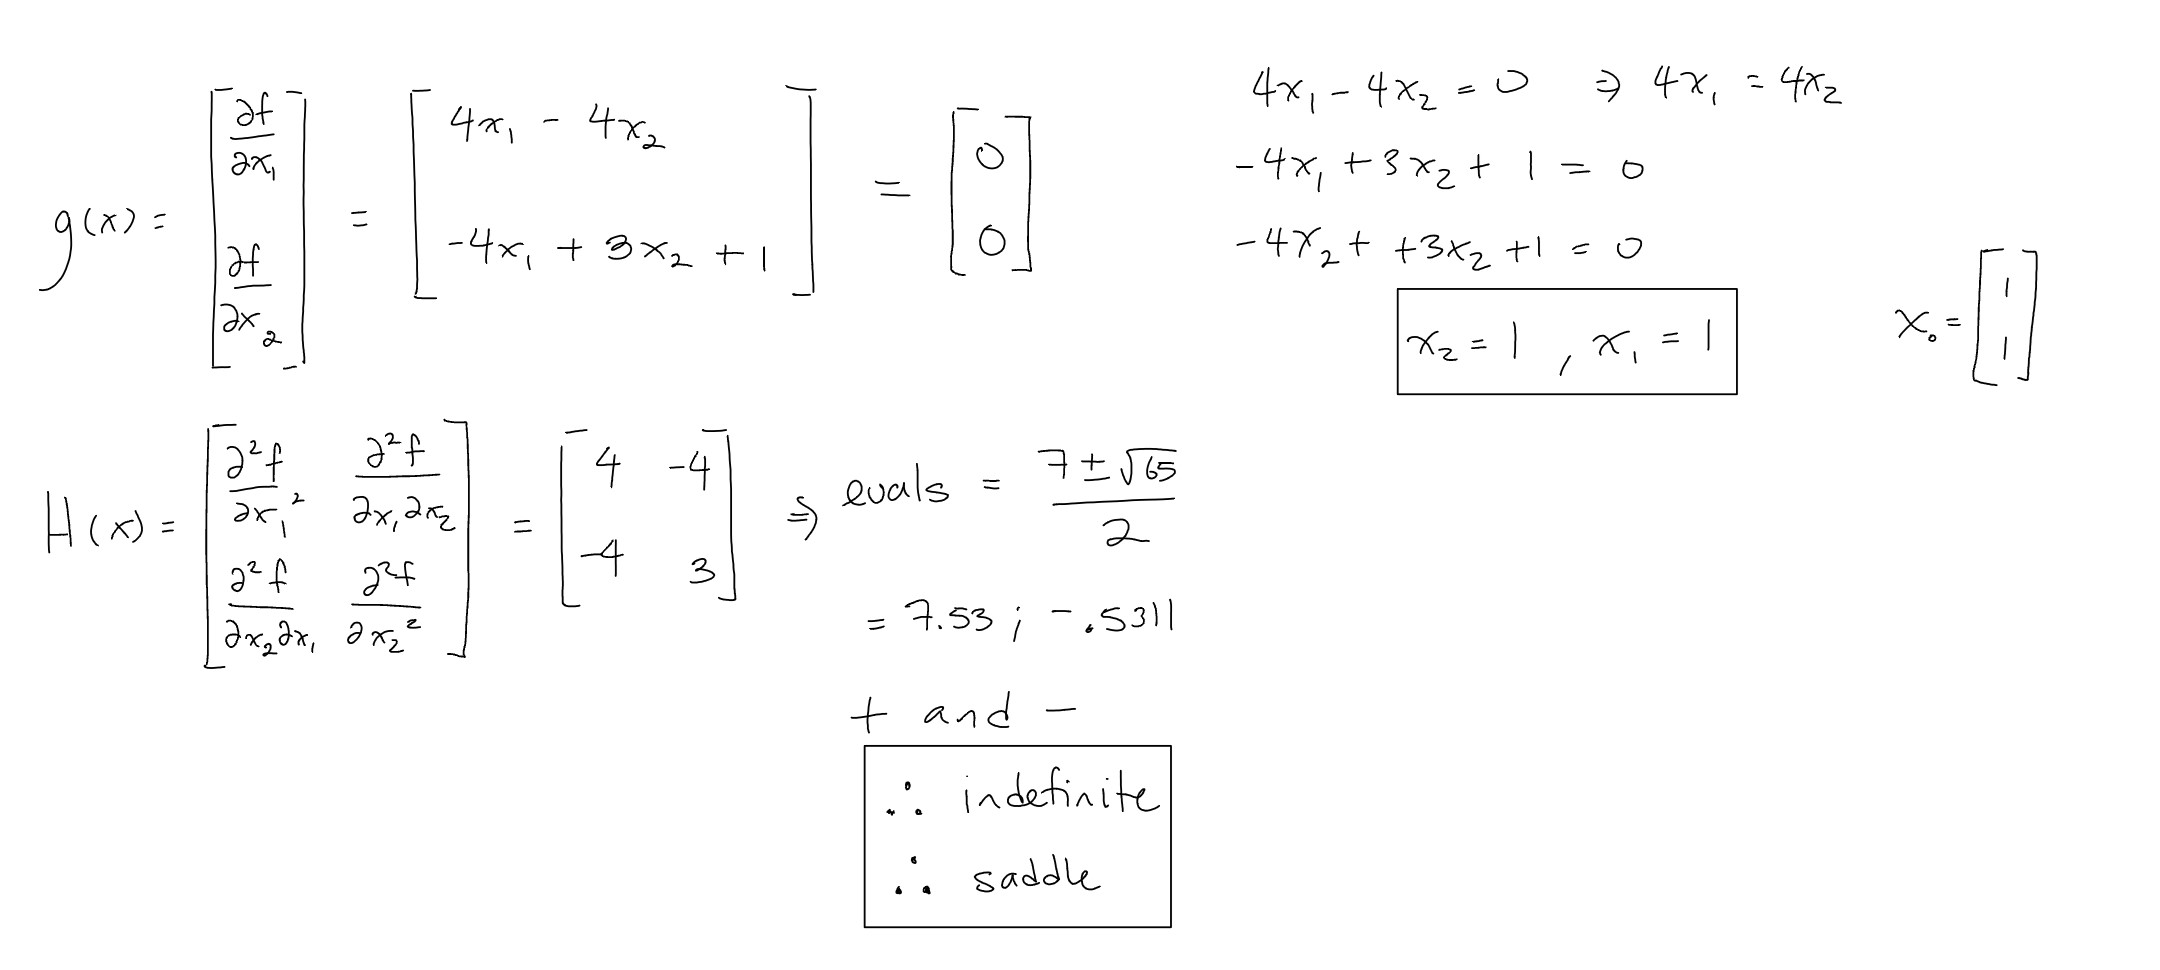 g(x) = [∂f/∂x₁ ; ∂f/∂x₂] = [4x₁ - 4x₂ ; -4x₁ + 3x₂ + 1] = [0 ; 0]
4x₁ - 4x₂ = 0 ⇒ 4x₁ = 4x₂
-4x₁ + 3x₂ + 1 = 0
-4x₂ + +3x₂ + 1 = 0
x₂ = 1 , x₁ = 1
x₀ = [1 ; 1]
H(x) = [∂²f/∂x₁² ∂²f/∂x₁∂x₂ ; ∂²f/∂x₂∂x₁ ∂²f/∂x₂²] = [4 -4 ; -4 3] ⇒ evals = (7 ± √65)/2
= 7.53 ; -.5311
+ and -
∴ indefinite
∴ saddle